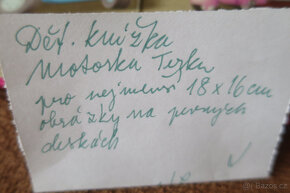 Dět. knížka
Motorka Terka
pro nejmenší 18 x 16 cm
obrázky na pevných
deskách